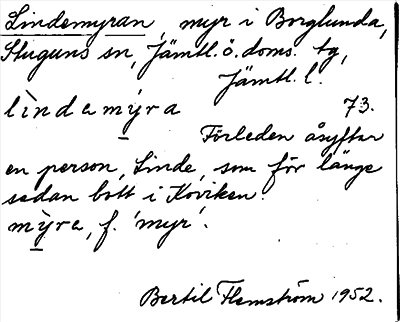 Lindemyran, myr i Borglunda,
Stuguns sn, Jämtl. ö. doms. tg,
Jämtl. l.
lìndemỳ̱ra 73.
Förleden åsyftar
en person, Linde, som för länge
sedan bott i Koviken.
mỳ̱ra, f. 'myr'.
Bertil Flemström 1952.